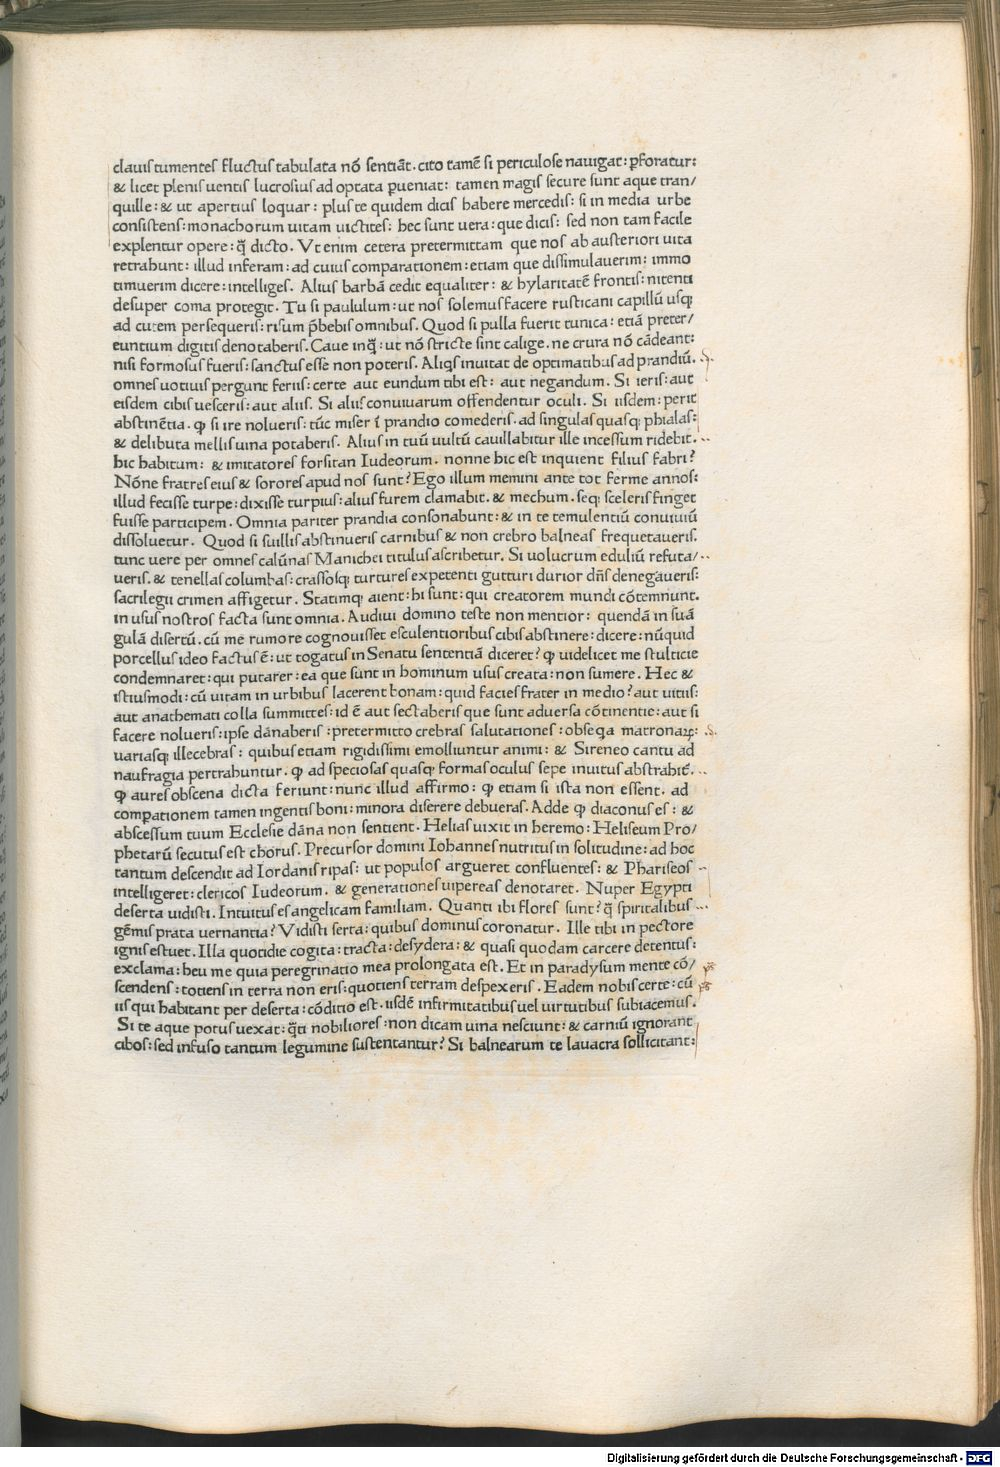 clauis tumentes fluctus tabulata nõ sentiãt. cito tamẽ si periculose nauigat: ꝑforatur:
& licet plenis uentis lucrosius ad optata ꝑueniat: tamen magis secure sunt aque tran/
quille: & ut apertius loquar: plus te quidem dicis habere mercedis: si in media urbe
consistens: monachorum uitam uictites: hec sunt uera: que dicis: sed non tam facile
explentur opere: q̃ dicto. Vt enim cetera pretermittam que nos ab austeriori uita
retrahunt: illud inferam: ad cuius comparationem: etiam que dissimulauerim: immo
timuerim dicere: intelliges. Alius barbã cedit equaliter: & hylaritatẽ frontis: nitenti
desuper coma protegit. Tu si paululum: ut nos solemus facere rusticani capillũ usq;
ad cutem persequeris: risum p̃bebis omnibus. Quod si pulla fuerit tunica: etiã preter/
euntium digitis denotaberis. Caue inq̃: ut nõ stricte sint calige. ne crura nõ cãdeant:
nisi formosus fueris: sanctus esse non poteris. Aliqs inuitat de optimatibus ad prandiũ.
omnes uotiuis pergunt feriis: certe aut eundum tibi est: aut negandum. Si ieris: aut
eisdem cibis uesceris: aut aliis. Si aliis conuiuarum offendentur oculi. Si iisdem: perit
abstinẽtia. ꝙ si ire nolueris: tũc miser ĩ prandio comederis. ad singulas quasq; phialas:
& delibuta mellis uina potaberis. Alius in tuũ uultũ cauillabitur ille incessum ridebit.
hic habitum: & imitatores forsitan Iudeorum. nonne hic est inquient filius fabri?
Nõne fratres eius & sorores apud nos sunt? Ego illum memini ante tot ferme annos:
illud fecisse turpe: dixisse turpius: alius furem clamabit. & mechum. seq; sceleris finget
fuisse participem. Omnia pariter prandia consonabunt: & in te temulentiũ conuiuiũ
dissoluetur. Quod si suillis abstinueris carnibus & non crebro balneas frequetaueris.
tunc uere per omnes calũnas Manichei titulus ascribetur. Si uolucrum eduliũ refuta/
ueris. & tenellas columbas: crassosq; turtures expetenti gutturi durior dñs denegaueris:
sacrilegii crimen affigetur. Statimq; aient: hi sunt: qui creatorem mundi cõtemnunt.
in usus nostros facta sunt omnia. Audiui domino teste non mentior: quendã in suã
gulã disertũ. cũ me rumore cognouisset esculentioribus cibis abstinere: dicere: nũquid
porcellus ideo factus ẽ: ut togatus in Senatu sententiã diceret? ꝙ uidelicet me stulticie
condemnaret: qui putarer: ea que sunt in hominum usus creata: non sumere. Hec &
istiusmodi: cũ uitam in urbibus lacerent bonam: quid facies frater in medio? aut uitiis:
aut anathemati colla summittes: id ẽ aut sectaberis que sunt aduersa cõtinentie: aut si
facere nolueris: ipse dãnaberis: pretermitto crebras salutationes: obseqa matronaꝝ:
uariasq; illecebras: quibus etiam rigidissimi emolliuntur animi: & Sireneo cantu ad
naufragia pertrahuntur. ꝙ ad speciosas quasq; formas oculus sepe inuitus abstrahit.
ꝙ aures obscena dicta feriunt: nunc illud affirmo: ꝙ etiam si ista non essent. ad
compationem tamen ingentis boni: minora diserere debueras. Adde ꝙ diaconus es: &
abscessum tuum Ecclesie dãna non sentient. Helias uixit in heremo: Heliseum Pro/
phetarũ secutus est chorus. Precursor domini Iohannes nutritus in solitudine: ad hoc
tantum descendit ad Iordanis ripas: ut populos argueret confluentes: & Phariseos
intelligeret: clericos Iudeorum. & generationes uipereas denotaret. Nuper Egypti
deserta uidisti. Intuitus es angelicam familiam. Quanti ibi flores sunt? q̃ spiritalibus
gẽmis prata uernantia? Vidisti serta: quibus dominus coronatur. Ille tibi in pectore
ignis estuet. Illa quotidie cogita: tracta: desydera: & quasi quodam carcere detentus:
exclama: heu me quia peregrinatio mea prolongata est. Et in paradysum mente cõ/
scendens: totiens in terra non eris: quotiens terram despexeris. Eadem nobis certe: cũ
iis qui habitant per deserta: cõditio est. iisdẽ infirmitatibus uel uirtutibus subiacemus.
Si te aque potus uexat: q̃ti nobiliores: non dicam uina nesciunt: & carniũ ignorant
cibos: sed infuso tantum legumine sustentantur? Si balnearum te lauacra sollicitant:
Digitalisierung gefördert durch die Deutsche Forschungsgemeinschaft - DFG